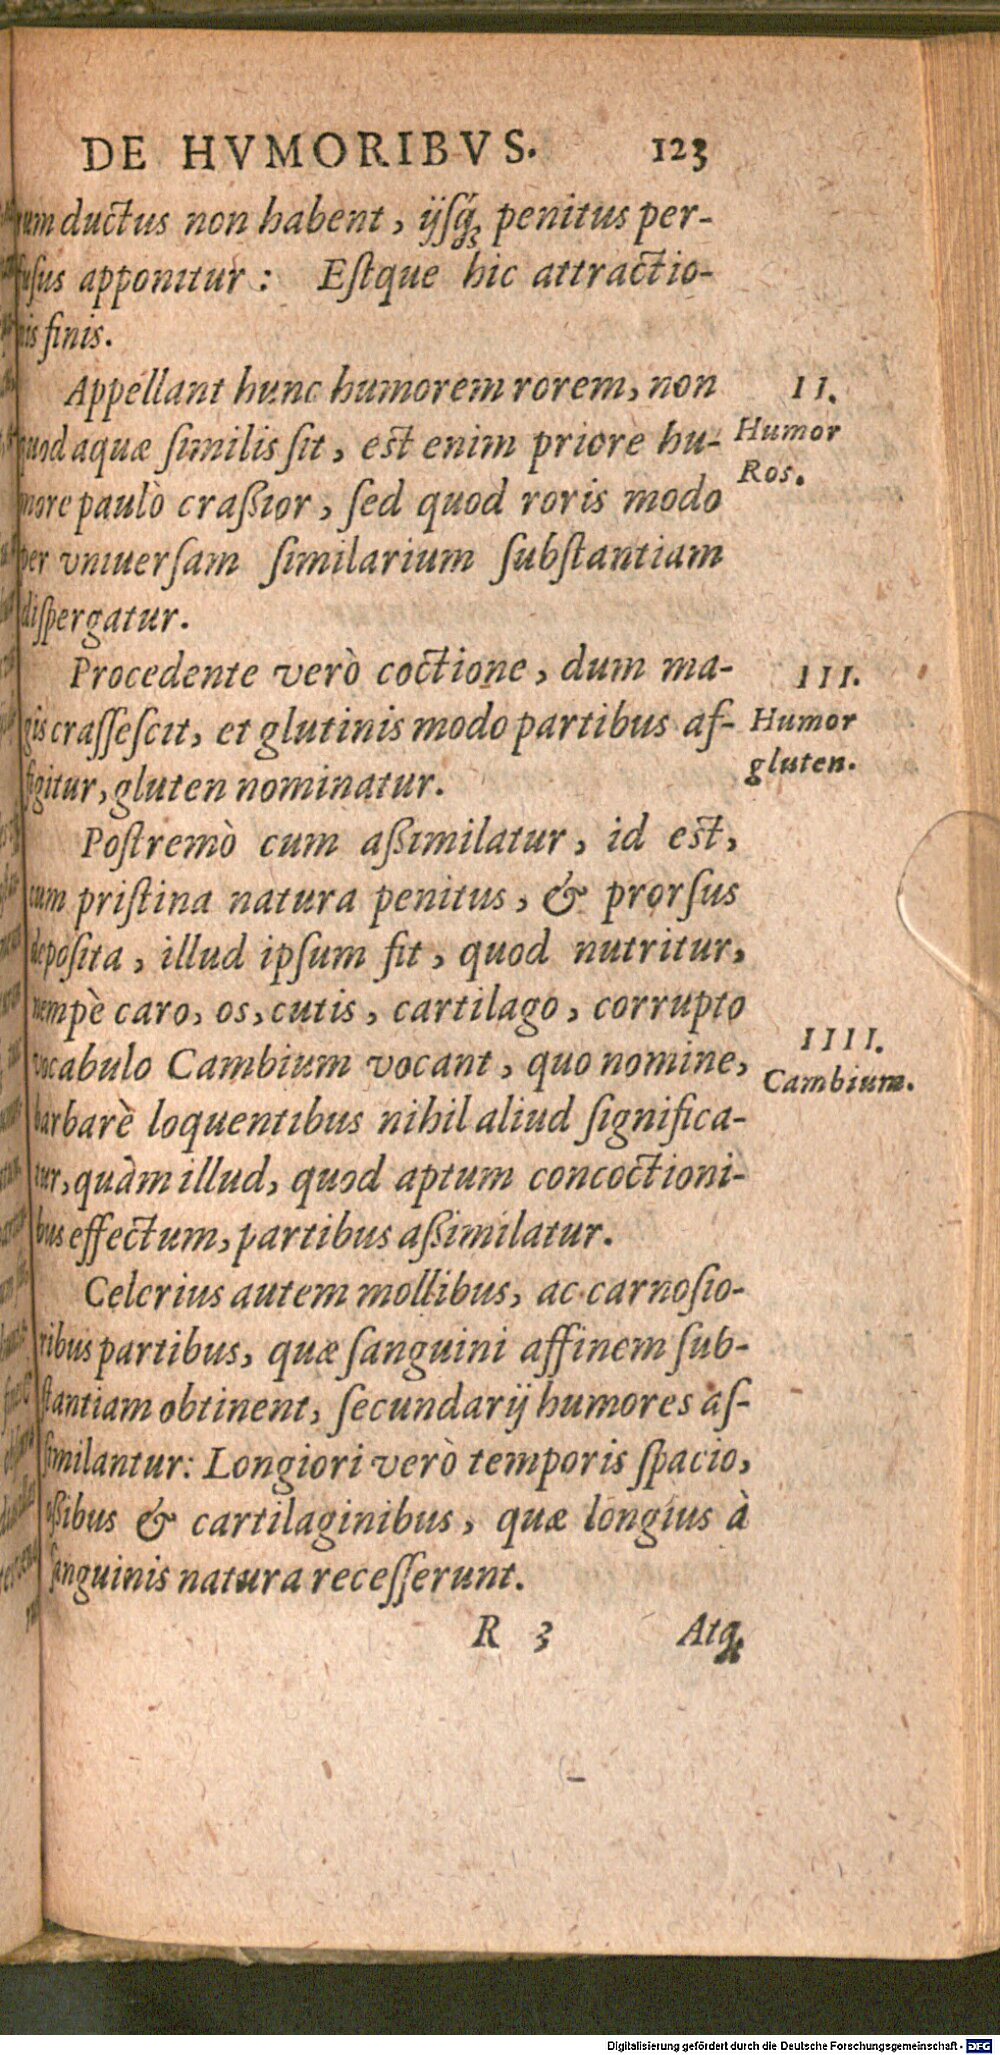 DE HVMORIBVS. 123
ductus non habent, ijsq́; penitus per-
apponitur: Estque hic attractio-
nis finis.
Appellant hunc humorem rorem, non
quod aquæ similis sit, est enim priore hu-
more paulò craßior, sed quod roris modo
per vniuersam similarium substantiam
dispergatur.
II.
Humor
Ros.
Procedente verò coctione, dum ma-
gis crassescit, et glutinis modo partibus af-
figitur, gluten nominatur.
III.
Humor
gluten.
Postremò cum aßimilatur, id est,
cum pristina natura penitus, & prorsus
deposita, illud ipsum fit, quod nutritur,
nempè caro, os, cutis, cartilago, corrupto
vocabulo Cambium vocant, quo nomine,
barbarè loquentibus nihil aliud significa-
tur, quàm illud, quod aptum concoctioni-
bus effectum, partibus aßimilatur.
IIII.
Cambium.
Celerius autem mollibus, ac carnosio-
ribus partibus, quæ sanguini affinem sub-
stantiam obtinent, secundarij humores as-
similantur: Longiori verò temporis spacio,
oßibus & cartilaginibus, quæ longius à
sanguinis natura recesserunt.
R 3 Atq́;
Digitalisierung gefördert durch die Deutsche Forschungsgemeinschaft - DFG